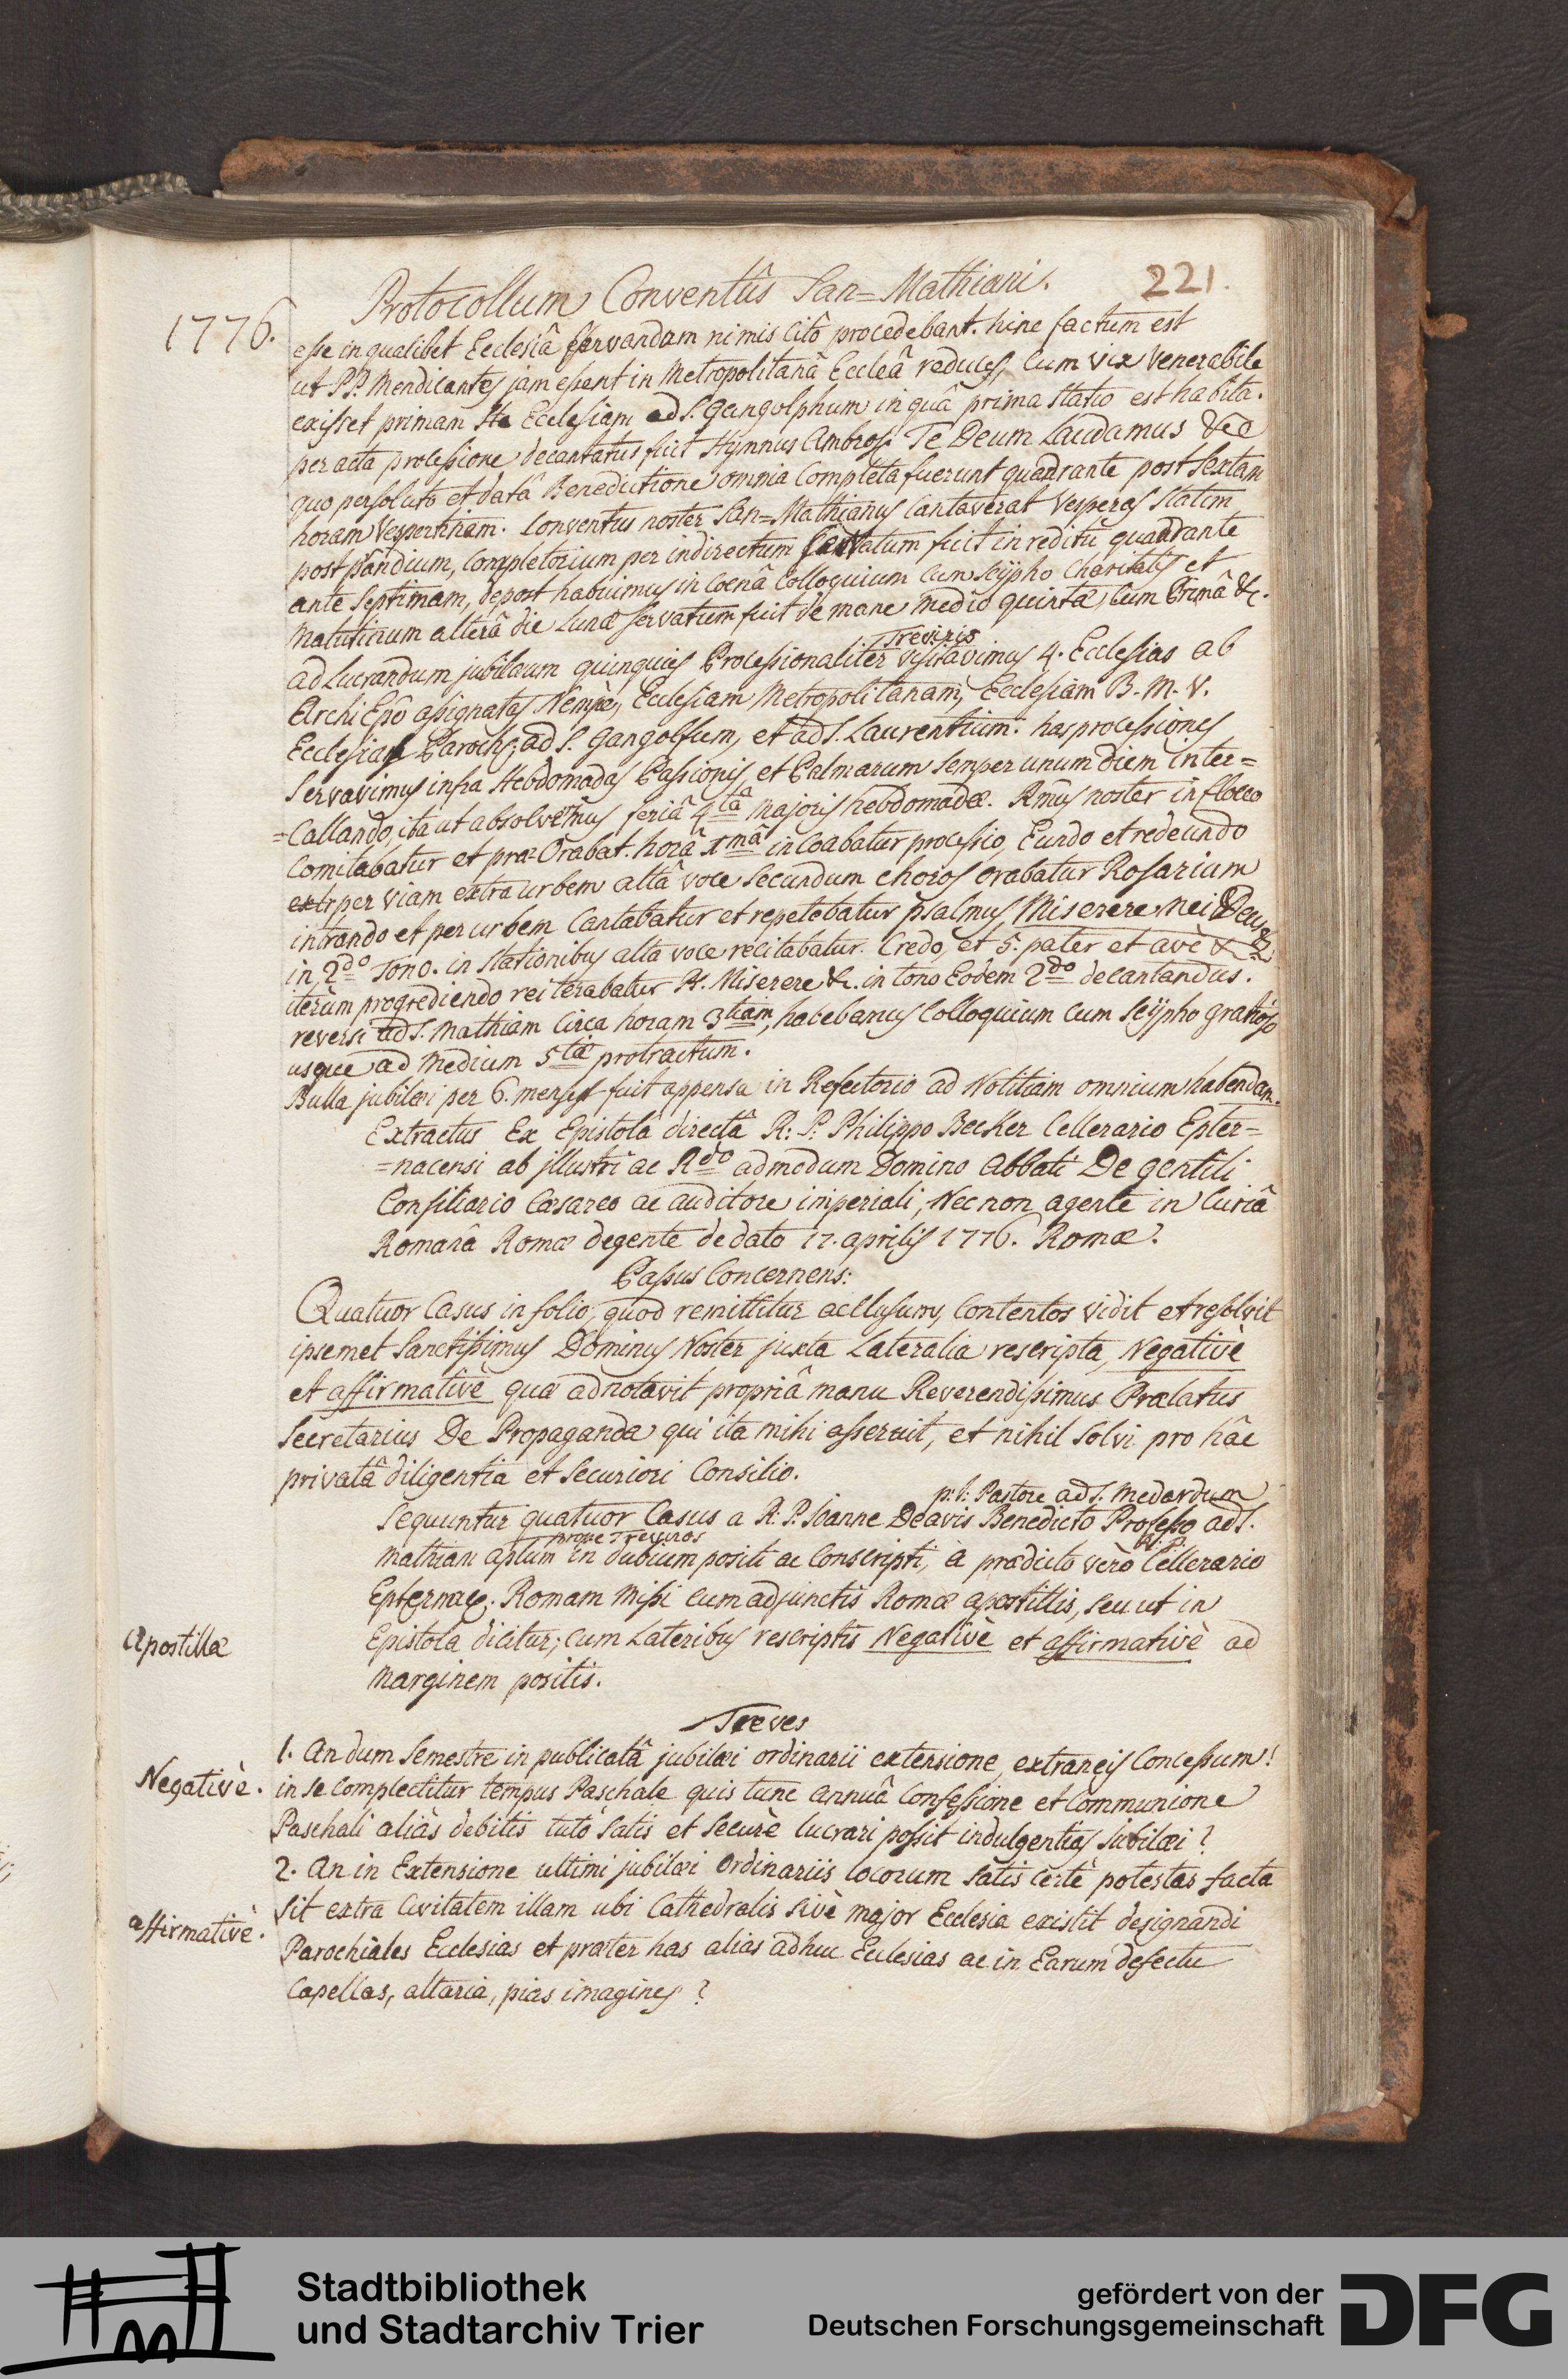 Protocollum Conventûs San=Mathiani.
221.
1776.
esse in qualibet Ecclesiâ servandam nimis citò procedebant. hinc factum est
ut PP. Mendicantes jam essent in Metropolitanâ Eccleâ reduces, cum vix Venerabile
exisset primam Ecclesiam ad S. Gangolphum in quâ prima statio est habita.
per acta processione decantatus fuit Hymnus Ambros. Te Deum Laudamus &c
quo persoluto et datâ Benedictione omnia completa fuerunt quadrante post sextam
horam Vespertinam. Conventus noster San=Mathianus Cantaverat Vesperas statim
post prandium, completorium per indirectum servatum fuit in reditu quadrante
ante septimam, depost habuimus in Coenâ Colloquium cum scÿpho Charitatis et
Matutinum alterâ die Lunæ servatum fuit de mane medio quintæ, cum Primâ &c.
Treviris
ad Lucrandum jubilæum quinquies Processionaliter visitavimus 4. Ecclesias ab
Archi Epo assignatas Nempè, Ecclesiam Metropolitanam, Ecclesiam B. M. V.
Ecclesias Paroch: ad S. Gangolfum, et ad S. Laurentium. has processiones
servavimus infra Hebdomadas Passionis, et Palmarum semper unum diem inter=
=Callando, ita ut absolverimus feriâ 4tâ majoris hebdomadæ. Rmus noster in flocco
Comitabatur et præ Orabat. horâ 1mâ incoabatur processio, Eundo et redeundo
extr per viam extra urbem altâ voce secundum choros orabatur Rosarium
intrando et per urbem Cantabatur et repetebatur psalmus, Miserere Mei Deus &c
in 2do Tono. in stationibus alta voce recitabatur. Credo, et 5. pater et avè &c
iterùm progrediendo reiterabatur Ps. Miserere &c. in tono Eodem 2do decantandus.
reversi ad S. Mathiam Circa horam 3tiam, habebamus Colloquium cum scÿpho gratioso
usque ad Medium 5tæ protractum.
Bulla jubilæi per 6. menses fuit appensa in Refectorio ad Notitiam omnium habendam.
Extractus Ex Epistolâ directâ R: P: Philippo Becker Cellerario Epter=
=nacensi ab jllustri ac Rdo admodum Domino Abbati De gentili
Consiliario Cæsareo ac auditore imperiali, Nec non agente in Curiâ
Romanâ Romæ degente de dato 17. aprilis 1776. Romæ.
Passus Concernens:
Quatuor Casus in folio, quod remittitur acclusum, Contentos vidit et resolvit
ipsemet Sanctissimus Dominus Noster juxta Lateralia rescripta, Negativè
et affirmativè quæ adnotavit propriâ manu Reverendissimus Prælatus
Secretarius De Propaganda qui ita mihi asseruit, et nihil solvi pro hâc
privatâ diligentia et securiori Consilio.
p: t: Pastore ad S. Medardum
Sequuntur quatuor Casus a R: P. Joanne Deavis Benedicto Professo ad S.
prope Treviros
R: P:
Mathiam aptum in dubium positi ac Conscripti, à prædicto verò Cellerario
Epternac. Romam missi cum adjunctis Romæ apostillis, seu ut in
Apostillæ
Epistola dicitur, cum Lateribus rescriptis Negativè et affirmativè ad
marginem positis.
Treves
1. An dum Semestre in publicatâ jubilæi ordinarii extensione, extraneis Concessum!
Negativè.
in se complectitur tempus Paschale quis tunc annuâ Confessione et Communione
Paschali aliàs debitis tutò satis et securè lucrari possit indulgentias Jubilæi?
2. An in Extensione ultimi jubilæi Ordinariis locorum satis certè potestas facta
affirmativè.
sit extra Civitatem illam ubi Cathedralis sivè major Ecclesia existit designandi
Parochiales Ecclesias et præter has alias adhuc Ecclesias ac in Earum defectu
Capellas, altaria, pias imagines?
Stadtbibliothek
und Stadtarchiv Trier
gefördert von der
Deutschen Forschungsgemeinschaft
DFG